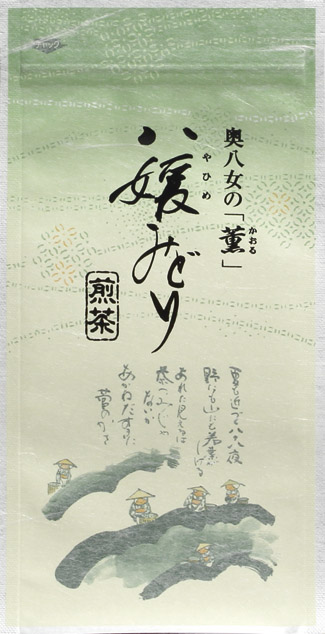 奥八女の「薫」
かおる
八媛みどり
やひめ
煎茶
夏も近づく八十八夜
野にも山にも若葉がしげる
あれに見えるは
茶つみじゃ
ないか
あかねだすきに
菅のかさ